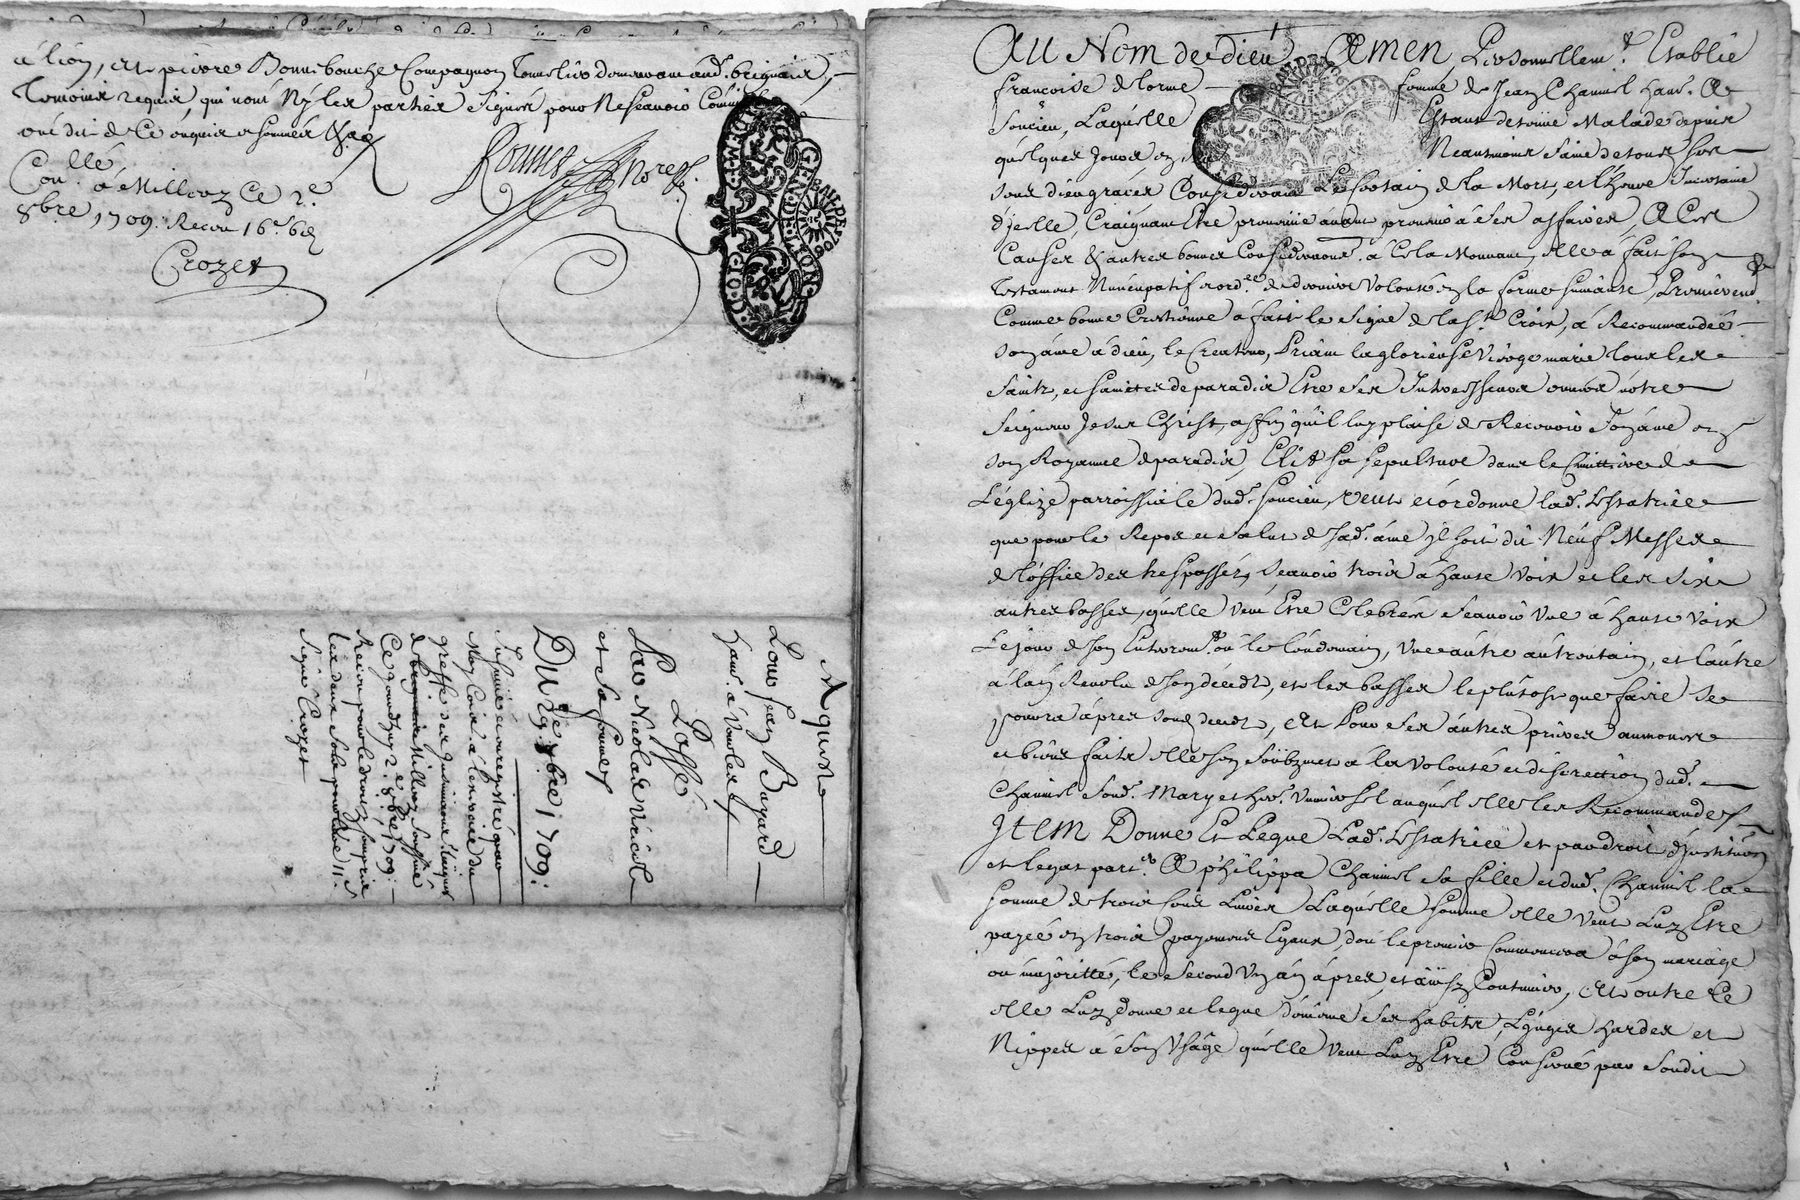 a lion, et pierre Bonnebouche Compagnon Tonnelier demeurant aud. brignais,
Temoins requis qui n'ont Ny les parties Signé pour Ne Scavoir
ont dit de Ce enquis et sommés
Conllé
Con. a Millery Ce 2.e
8bre, 1709. Recu 16s 6d
Crozet
Nore.
GEN. DE LION
BAIL DE 1706
Aquis
Pour Jean Bayard
hant. a Vourles
Passé
Par Nicolas
et Sa femme
Du 9e 8bre 1709:
Insinué et enregistré
greffe des Insinuations
de Millery Soussigné
Ce jourdhuy 2.e 8bre 1709:
Recu pour le droit
les deux Sols pour livre
Signé Crozet
Au Nom de Dieu Amen, Personnellem.t Establie
francoise delorme femme de Jean Chamiel hant. A
Soucieu, Laquelle Estant detenüe Malade depuis
quelques Jours Neantmoins Saine de tous Ses
sens dieu graces Considerant Le Certain de la Mort, et l'heure Incertaine
d'jcelle, Craignant Etre prevenüe avant pourvoir a Ses affaires, A Ces
Causes & autres bonnes Considerations a Cela Mouvant elle a fait son
Testament Nuncupatif et ord.ce de derniere Volonté en la forme suivante, Premierem.t
Comme bonne Crestienne a fait le Signe de la S.te Croix, a Recommandée
son ame a dieu, le Createur, Priant la glorieuse Vierge marie Tous les
Saints, et Saintes de paradis Etre Ses Intercesseurs envers nôtre
Seigneur Jesus Christ, affin qu'il luy plaise de Recevoir Son ame en
son Royaume de paradis, Elit Sa Sepulture dans le Cimittiere de
L'églize parroissialle dud. Soucieu, Veut et ordonne lad. Testatrice
que pour le Repos et Salut de Sad. ame jl soit dit Neuf Messes
de l'office des trespassés, Scavoir trois a haute Voix et les Six
autres basses, quelle Veut Etre Celebrées Scavoir Une a haute Voix
Le jour de son Enterrem.t ou le lendemain, Une autre au trentain, et lautre
a lan Revolu de son décedz, et les basses le plutost que faire Se
pourra apres sond. decedz, Et Pour Ses autres prieres aumones
et biens faits elle sen Soübzmet a la Volonté et discrettion dud.
Chamiel Sond. Mary et her. Universel auquel elle les Recommande
Item Donne Et Legue Lad. Testatrice et par droit d'Institution
et legat part.er A philippa Chamiel Sa fille et dud. Chamiel la
Somme de trois Cens Livres Laquelle Somme elle Veut Luy Etre
payée en trois payemens Egaux, dont le premier Commencera a son mariage
ou majorittée, le Second Un an apres, et ainsy Continuer, Et outre Ce
elle Luy donne et legue Ses habits, Linges hardes et
Nippes a Son Usage quelle Veut Luy Etre par Sondit